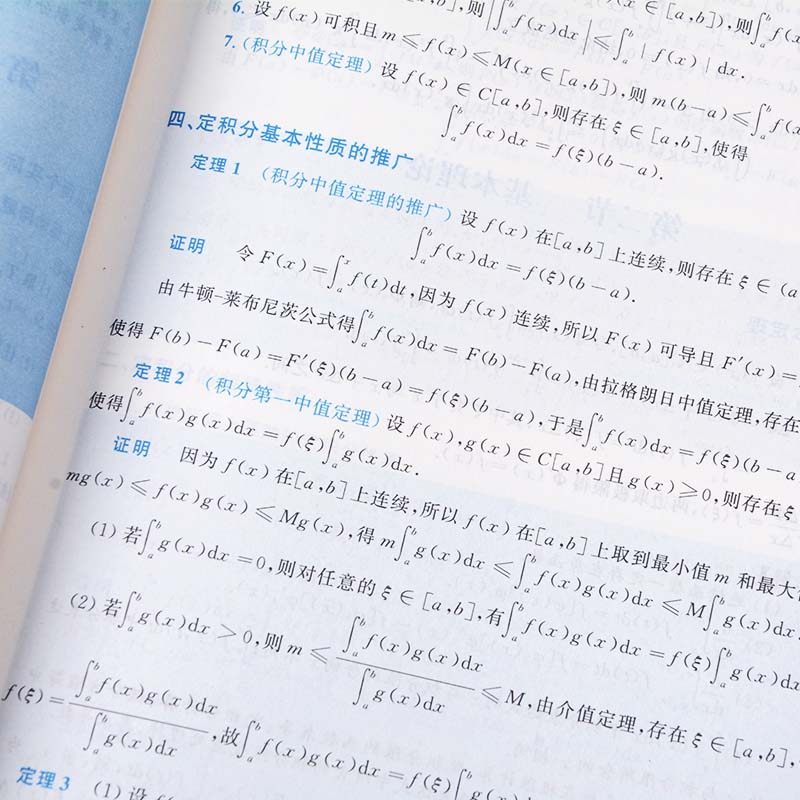 b],则|∫_a^b f(x)dx|≤∫_a^b|f(x)|dx.
6. 设 f(x) 可积且 m≤f(x)≤M(x∈[a,b]),则 m(b-a)≤∫_a^b f(x)
7. (积分中值定理) 设 f(x)∈C[a,b],则存在 ξ∈[a,b],使得
∫_a^b f(x)dx=f(ξ)(b-a).
四、定积分基本性质的推广
定理 1 (积分中值定理的推广) 设 f(x) 在[a,b]上连续,则存在 ξ∈(a
∫_a^b f(x)dx=f(ξ)(b-a).
证明 令 F(x)=∫_a^x f(t)dt,因为 f(x) 连续,所以 F(x) 可导且 F′(x)=
由牛顿-莱布尼茨公式得∫_a^b f(x)dx=F(b)-F(a),由拉格朗日中值定理,存在
使得 F(b)-F(a)=F′(ξ)(b-a)=f(ξ)(b-a),于是∫_a^b f(x)dx=f(ξ)(b-a
定理 2 (积分第一中值定理) 设 f(x),g(x)∈C[a,b]且 g(x)≥0,则存在 ξ
使得∫_a^b f(x)g(x)dx=f(ξ)∫_a^b g(x)dx.
证明 因为 f(x) 在[a,b]上连续,所以 f(x) 在[a,b]上取到最小值 m 和最大
mg(x)≤f(x)g(x)≤Mg(x),得 m∫_a^b g(x)dx≤∫_a^b f(x)g(x)dx≤M∫_a^b g(x)dx
(1) 若∫_a^b g(x)dx=0,则对任意的 ξ∈[a,b],有∫_a^b f(x)g(x)dx=f(ξ)∫_a^b g(x)dx
(2) 若∫_a^b g(x)dx>0,则 m≤∫_a^b f(x)g(x)dx/∫_a^b g(x)dx≤M,由介值定理,存在 ξ∈[a,b],
f(ξ)=∫_a^b f(x)g(x)dx/∫_a^b g(x)dx,故∫_a^b f(x)g(x)dx=f(ξ)∫_a^b g(x)dx
定理 3 (1) 设 f